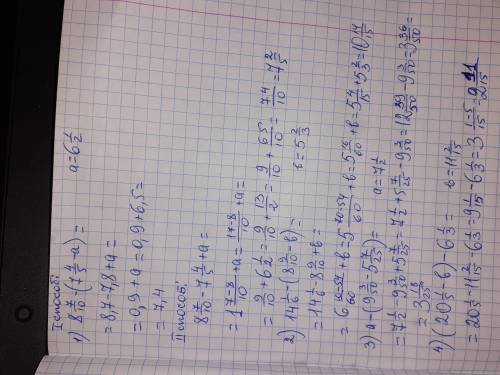 I способ:
1) 8 7/10 - (7 4/5 - a) = a = 6 1/2
= 8,7 - 7,8 + a =
= 0,9 + a = 0,9 + 6,5 =
= 7,4
II способ:
8 7/10 - 7 4/5 + a =
= 1 7-8/10 + a = 17-8/10 + a =
= 9/10 + 6 1/2 = 9/10 + 13/2 = 9/10 + 65/10 = 74/10 = 7 2/5
2) 14 1/6 - (8 9/10 - в) = в = 5 2/3
= 14 1/6 - 8 9/10 + в =
= 6 10-54/60 + в = 5 70-54/60 + в = 5 16/60 + в = 5 4/15 + 5 2/3 = 10 14/15
3) a - (9 3/50 - 5 7/25) = a = 7 1/2
= 7 1/2 - 9 3/50 + 5 7/25 = 7 1/2 + 5 7/25 - 9 3/50 = 12 39/50 - 9 3/50 = 3 36/50 =
= 3 18/25
4) (20 1/5 - в) - 6 1/3 = в = 11 2/15
= 20 1/5 - 11 2/15 - 6 1/3 = 9 1/15 - 6 1/3 = 3 1-5/15 = 2 11/15